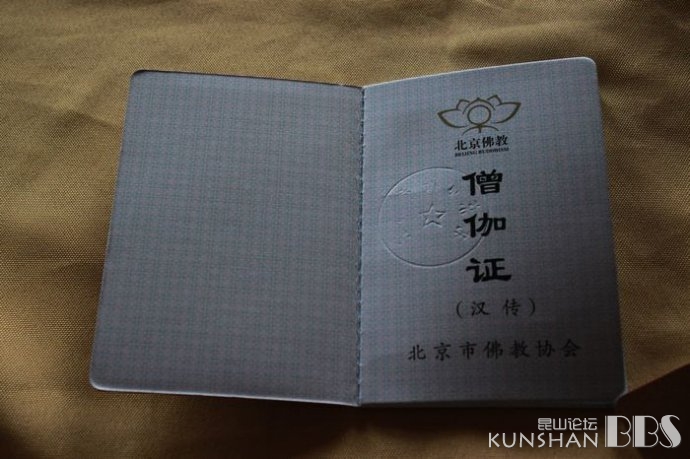 北京佛教
BEIJING BUDDHISM
僧
伽
证
（汉传）
北京市佛教协会
昆山论坛
KUNSHAN BBS